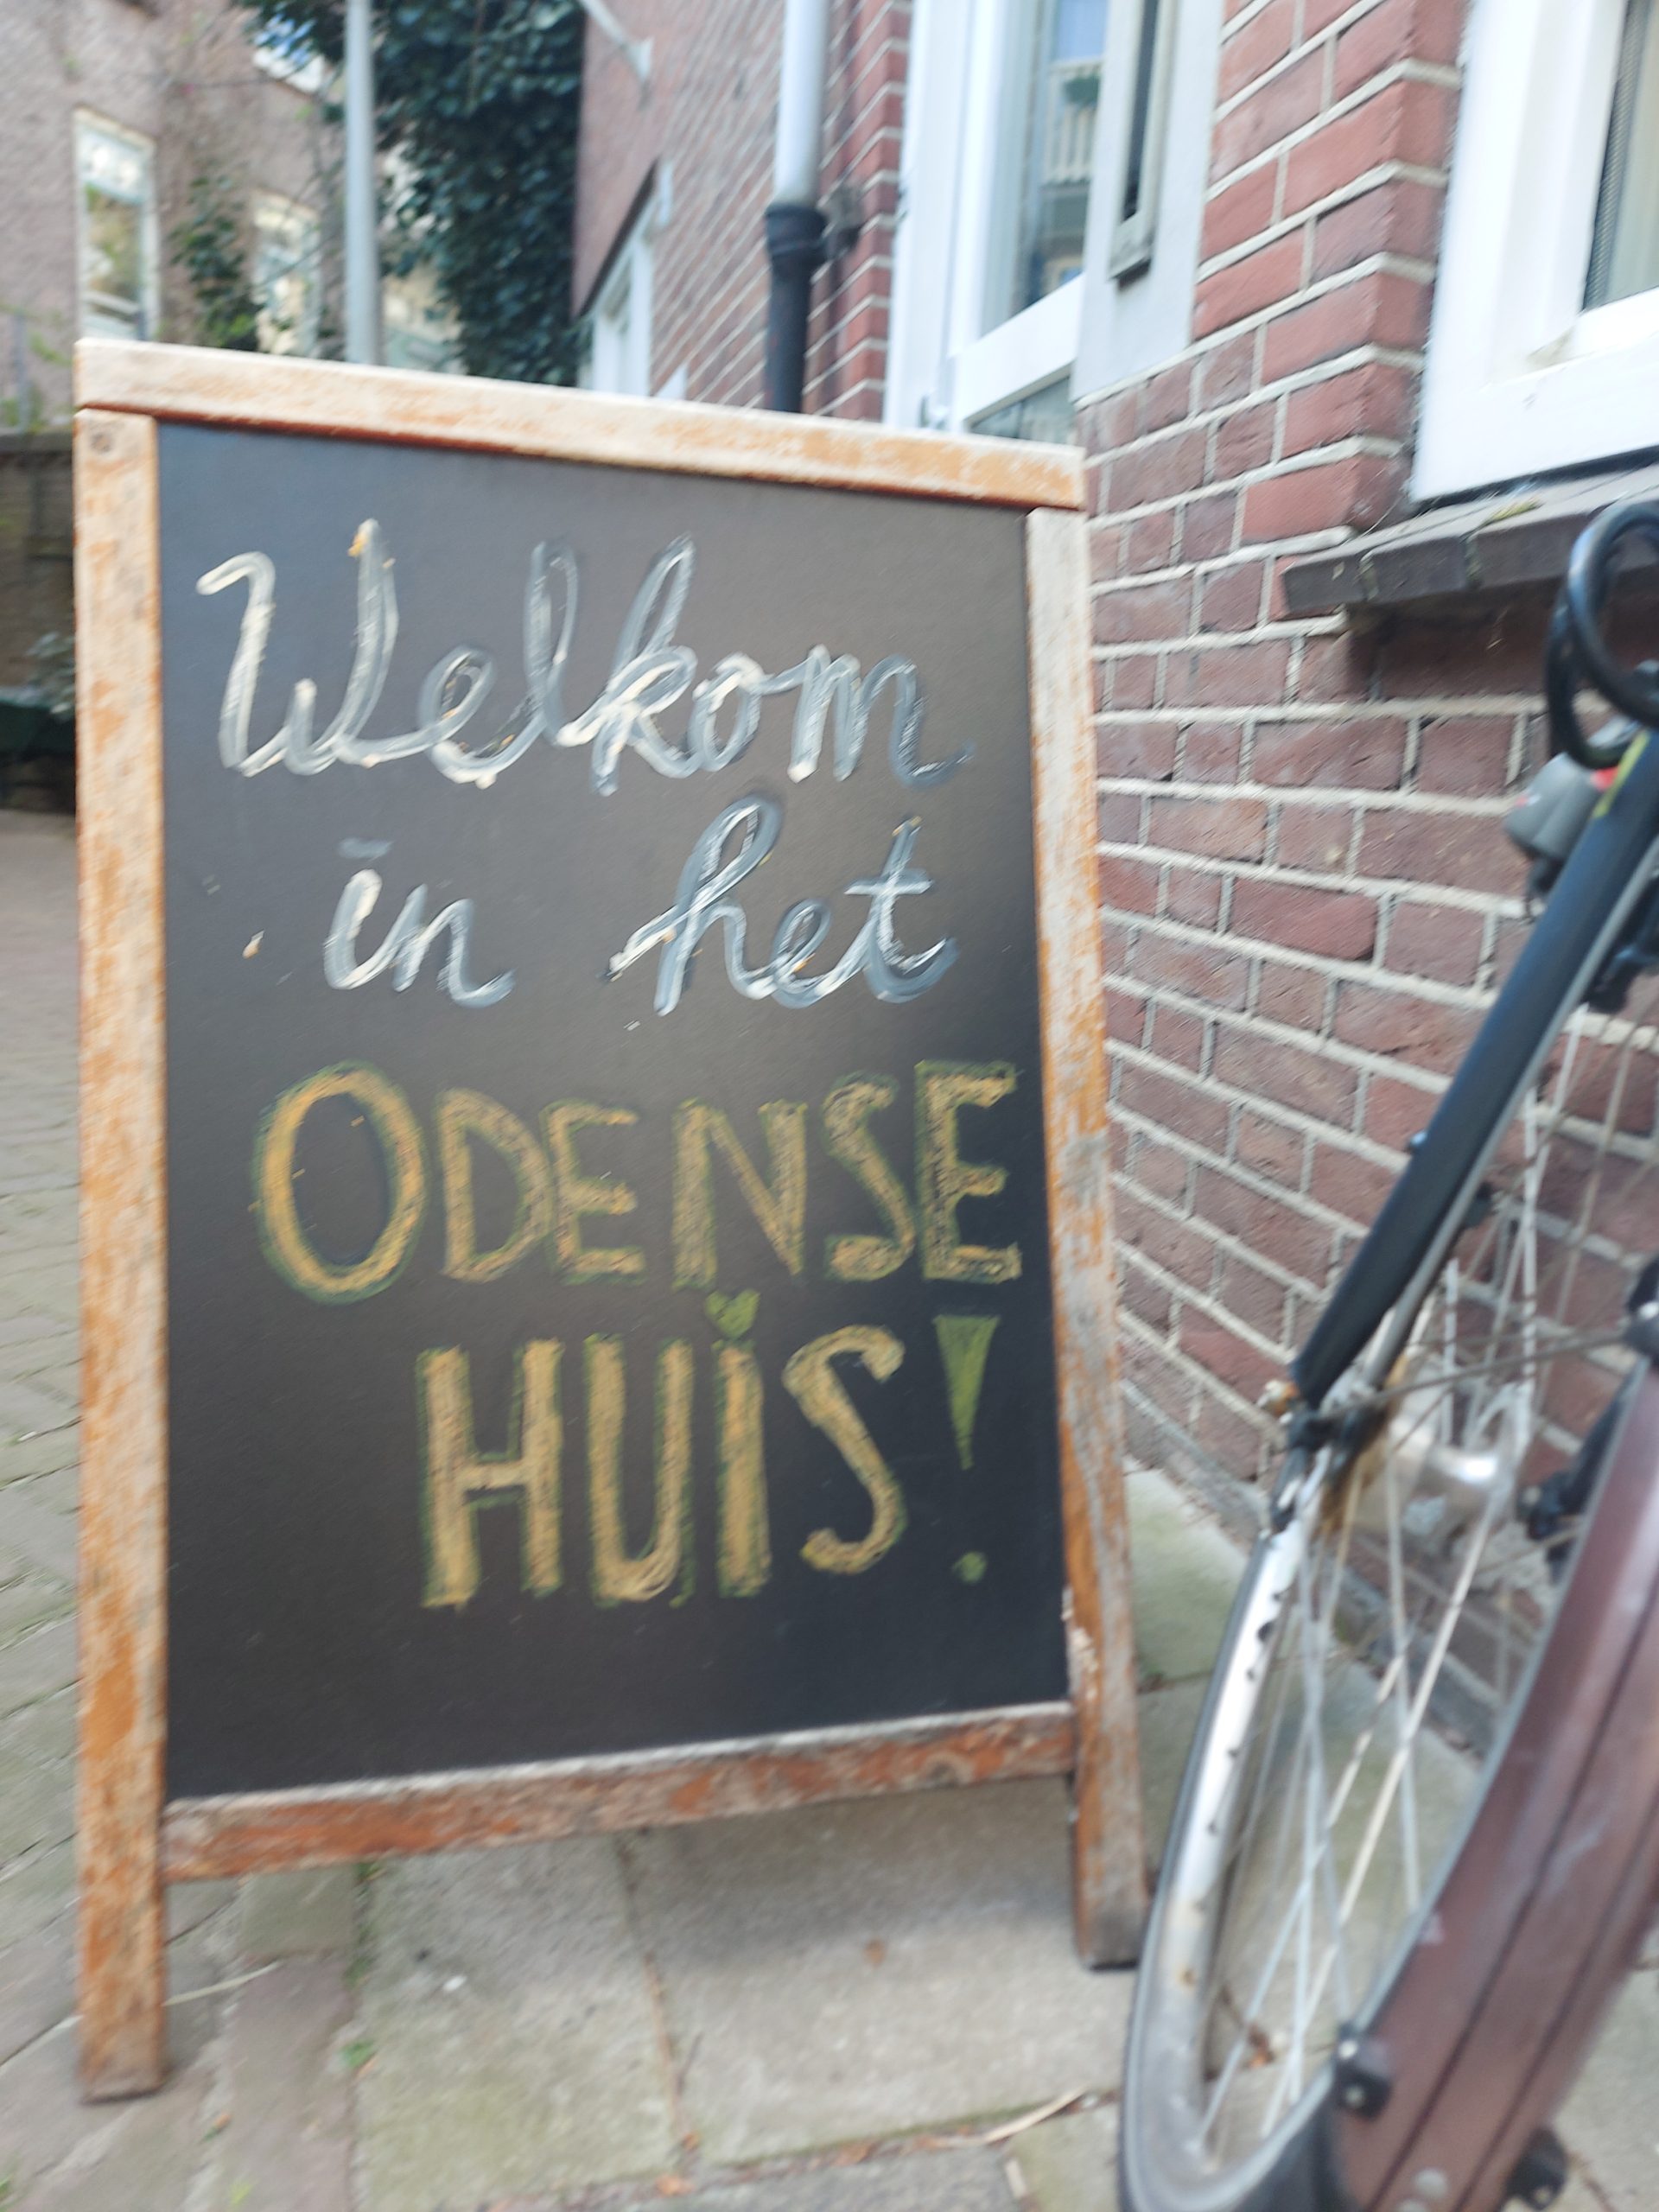 Welkom
in het
ODENSE
HUIS!